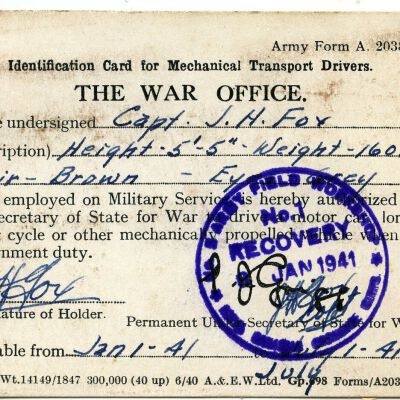 Army Form A. 203
Identification Card for Mechanical Transport Drivers.
THE WAR OFFICE.
e undersigned Capt. J. H. Fox
ription) Height-5'-5"-Weight-160
ir- Brown - Eyes grey
employed on Military Service is hereby authorized
ecretary of State for War to drive motor car, lor
cycle or other mechanically propelled vehicle when
rnment duty.
ARMY FIELD WORKSHOP
No. 1
RECOVERY
JAN 1941
H Fox
ature of Holder. Permanent Under-Secretary of State for W
able from Jan 1-41 to 1-41
July
Wt.14149/1847 300,000 (40 up) 6/40 A.& E.W.Ltd. Gp.698 Forms/A203